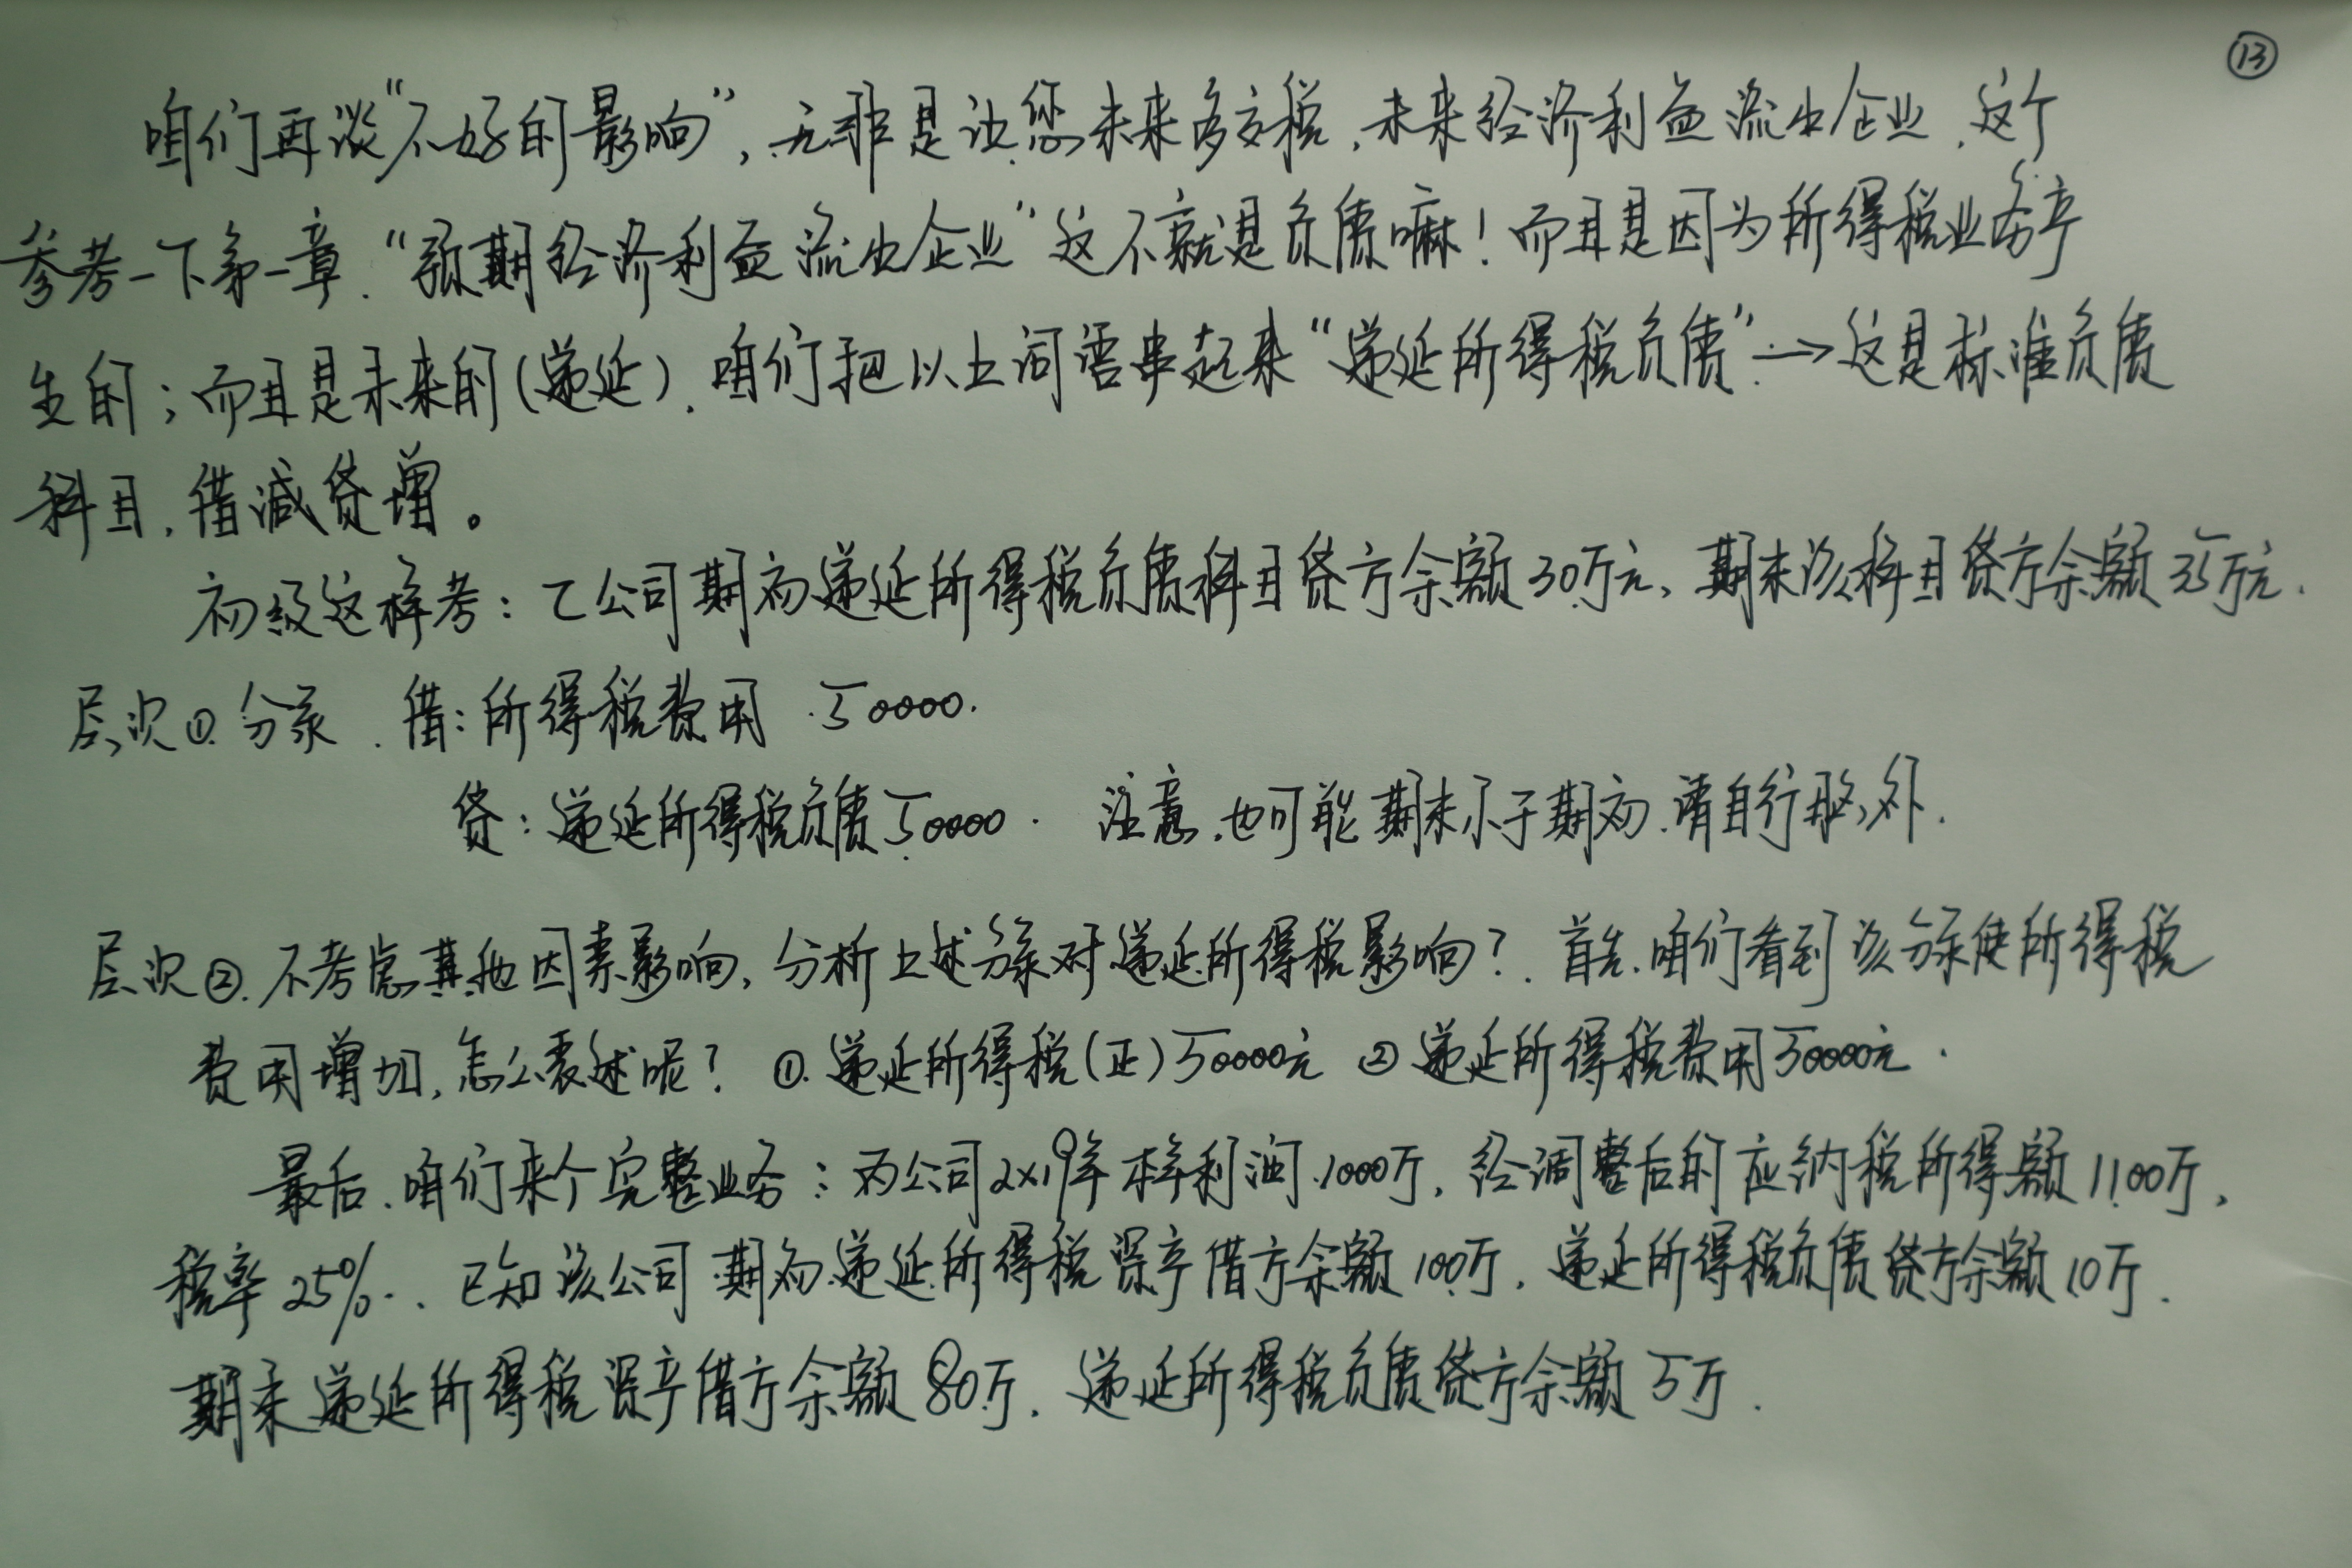 ⑬
咱们再谈“不好的影响”,无非是让您未来多交税,未来经济利益流出企业,这个
参考一下第一章.“预期经济利益流出企业”这不就是负债嘛!而且是因为所得税业务产
生的;而且是未来的(递延).咱们把以上词语串起来“递延所得税负债”→这是标准负债
科目,借减贷增。
初级这样考:乙公司期初递延所得税负债科目贷方余额30万元,期末该科目贷方余额35万元.
层次①.分录.借:所得税费用 50000.
贷:递延所得税负债50000. 注意.也可能期末小于期初.请自行脑补.
层次②.不考虑其他因素影响,分析上述分录对递延所得税影响?.首先.咱们看到该分录使所得税
费用增加,怎么表述呢? ①.递延所得税(正)50000元 ②递延所得税费用50000元.
最后.咱们来个完整业务:丙公司2×19年 本年利润1000万,经调整后的应纳税所得额1100万,
税率25%.已知该公司期初递延所得税资产借方余额100万,递延所得税负债贷方余额10万.
期末递延所得税资产借方余额80万.递延所得税负债贷方余额5万.